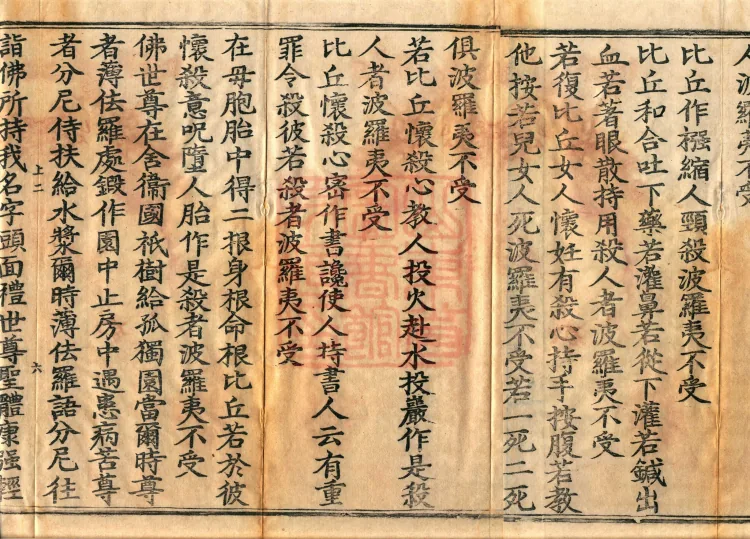 人波羅夷不受
比丘作撥縮人頸殺波羅夷不受
比丘和合吐下藥若灌鼻若從下灌若鍼出
血若著眼散持用殺人者波羅夷不受
若復比丘女人懷妊有殺心持手按腹若教
他按若兒女人死波羅夷不受若一死二死
俱波羅夷不受
若比丘懷殺心教人投火赴水投巖作是殺
人者波羅夷不受
比丘懷殺心密作書讒使人持書人云有重
罪令殺彼若殺者波羅夷不受
在母胞胎中得二根身根命根比丘若於彼
懷殺意呪墮人胎作是殺者波羅夷不受
佛世尊在舍衞國祇樹給孤獨園當爾時尊
者薄佉羅處鍛作園中止房中遇患病苦尊
者分尼侍扶給水漿爾時薄佉羅語分尼往
上二 六
詣佛所持我名字頭面禮世尊聖體康强輕